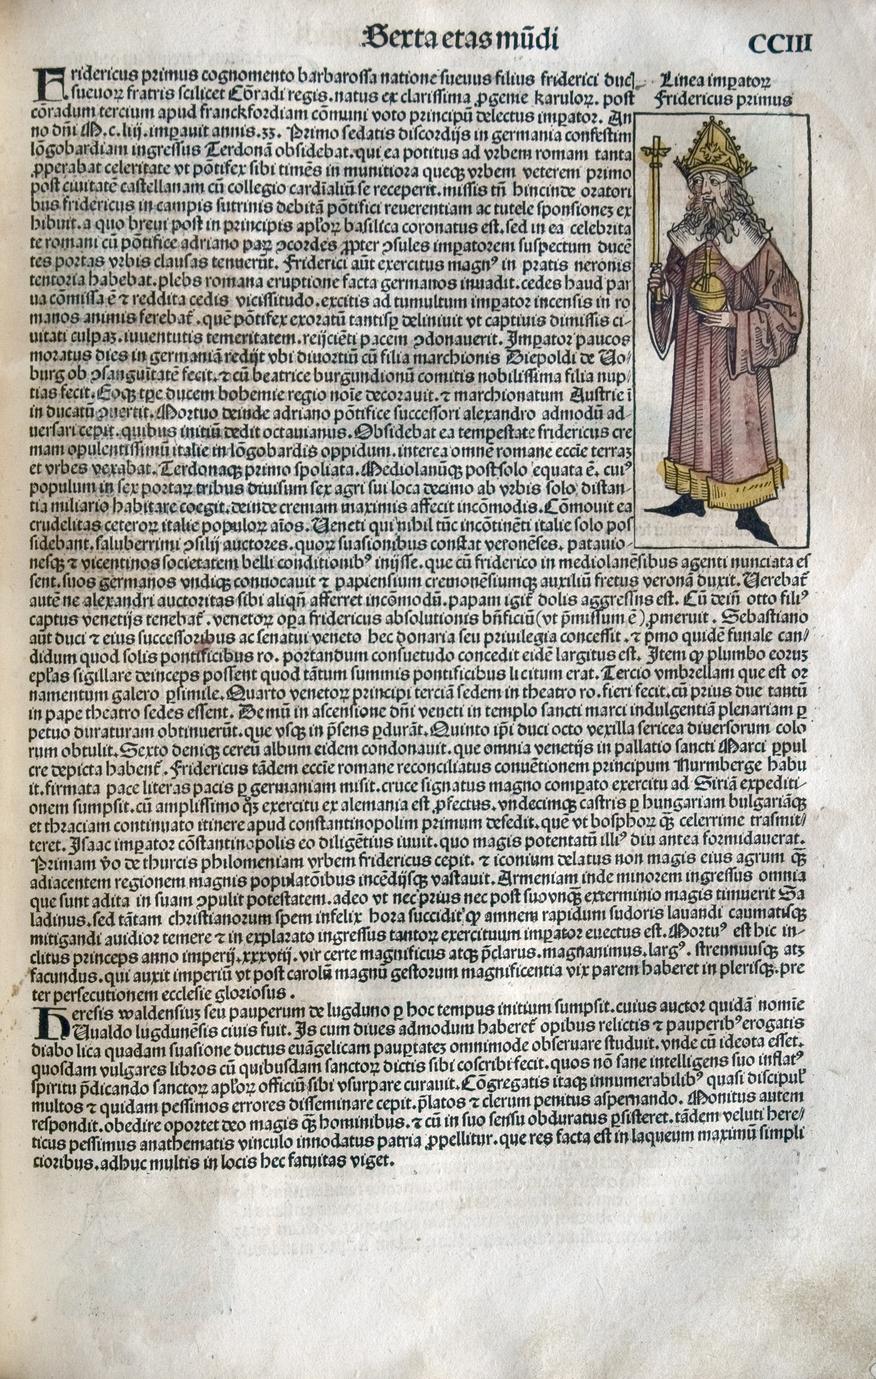 Sexta etas mūdi
CCIII
Fridericus primus cognomento barbarossa natione sueuus filius friderici ducꝭ
sueuoꝝ fratris scilicet Cōradi regis. natus ex clarissima ꝓgenie karuloꝝ. post
cōradum tercium apud franckfordiam cōmuni voto principū delectus imꝑator. An
no dn̄i M.c.liij. imꝑauit annis.33. Primo sedatis discordijs in germania confestim
lōgobardiam ingressus Terdonā obsidebat. qui ea potitus ad vrbem romam tanta
ꝓꝑabat celeritate vt pōtifex sibi timēs in munitiora queqꝫ vrbem veterem primo
post ciuitatē castellanam cū collegio cardīaliū se receperit. missis tn̄ hincinde oratori
bus fridericus in campis sutrinis debitā pōtifici reuerentiam ac tutele sponsionez ex
hibuit. a quo breui post in principis apl̄oꝝ basilica coronatus est. sed in ea celebrita
te romani cū pōtifice adriano paꝝ ꝯcordes ꝓpter ꝯsules imꝑatorem suspectum ducē
tes portas vrbis clausas tenuerūt. Friderici aūt exercitus magnꝰ in pratis neronis
tentoria habebat. plebs romana eruptione facta germanos inuadit. cedes haud par
ua cōmissa ē ⁊ reddita cedis vicissitudo. excitis ad tumultum imꝑator incensis in ro
manos animis ferebat᷑. quē pōtifex exoratū tantisꝑ deliniuit vt captiuis dimissis ci-
uitati culpaꝫ. iuuentutis temeritatem. reijciēti pacem ꝯdonauerit. Imꝑator paucos
moratus dies in germaniā redijt vbi diuortiū cū filia marchionis Diepoldi de Vo/
burg ob ꝯsanguītatē fecit. ⁊ cū beatrice burgundionū comitis nobilissima filia nup/
tias fecit. Eoqꝫ tꝑe ducem bohemie regio noīe decorauit. ⁊ marchionatum Austrie ī
in ducatū ꝯuertit. Mortuo deinde adriano pōtifice successori alexandro admodū ad-
uersari cepit. quibus initiū dedit octauianus. Obsidebat ea tempestate fridericus cre
mam opulentissimū italie in lōgobardis oppidum. interea omnē romane eccīe terraꝫ
et vrbes vexabat. Terdonaqꝫ primo spoliata. Mediolanūqꝫ postsolo equata ē. cuiꝰ
populum in sex portaꝝ tribus diuisum sex agri sui loca decimo ab vrbis solo distan-
tia miliario habitare coegit. deinde cremam maximis affecit incōmodis. Cōmouit ea
crudelitas ceteroꝝ italie populoꝝ aīos. Veneti qui nihil tūc incōtinēti italie solo pos
sidebant. saluberrimi ꝯsilij auctores. quoꝝ suasionibus constat veronēses. patauio-
nesqꝫ ⁊ vicentinos societatem belli conditionibꝰ inijsse. que cū friderico in mediolanēsibus agenti nunciata es
sent. suos germanos vndiqꝫ conuocauit ⁊ papiensium cremonēsiumqꝫ auxiliū fretus veronā duxit. Verebat᷑
autē ne alexandri auctoritas sibi aliqn̄ afferret incōmodū. papam igit᷑ dolis aggressus est. Cū dein̄ otto filiꝰ
captus venetijs tenebat᷑. venetoꝝ oꝑa fridericus absolutionis bn̄ficiū (vt p̄missum ē) ꝓmeruit. Sebastiano
aūt duci ⁊ eius successoribus ac senatui veneto hec donaria seu priuilegia concessit. ⁊ pīmo quidē funale can/
didum quod solis pontificibus ro. portandum consuetudo concedit eidē largitus est. Item ꝙ plumbo eoruꝫ
epl̄as sigillare deinceps possent quod tātum summis pontificibus licitum erat. Tercio vmbrellam que est or
namentum galero ꝑsimile. Quarto venetoꝝ principi terciā sedem in theatro ro. fieri fecit. cū prius due tantū
in pape theatro sedes essent. Demū in ascensione dn̄i veneti in templo sancti marci indulgentiā plenariam ꝑ
petuo duraturam obtinuerūt. que vsqꝫ in p̄sens ꝑdurāt. Quinto ip̄i duci octo vexilla sericea diuersorum colo
rum obtulit. Sexto deniqꝫ cereū album eidem condonauit. que omnia venetijs in pallatio sancti Marci ꝑpul
cre depicta habent᷑. Fridericus tādem eccīe romane reconciliatus conuētionem principum Nurmberge habu
it. firmata pace literas pacis ꝑ germaniam misit. cruce signatus magno comꝑato exercitu ad Siriā expediti-
onem sumpsit. cū amplissimo qꝫ exercitu ex alemania est ꝓfectus. vndecimqꝫ castris ꝑ hungariam bulgariāqꝫ
et thraciam continuato itinere apud constantinopolim primum desedit. quē vt bosphoꝝ qꝫ celerrime trasmit/
teret. Isaac imꝑator cōstantinopolis eo diligētius iuuit. quo magis potentatū illiꝰ diu antea formidauerat.
Primam v̄o de thurcis philomeniam vrbem fridericus cepit. ⁊ iconium delatus non magis eius agrum qꝫ
adiacentem regionem magnis populatōibus incēdijsqꝫ vastauit. Armeniam inde minorem ingressus omnia
que sunt adita in suam ꝯpulit potestatem. adeo vt nec prius nec post suovnqꝫ exterminio magis timuerit Sa
ladinus. sed tātam christianorum spem infelix hora succidit ꝙ amnem rapidum sudoris lauandi caumatisqꝫ
mitigandi auidior temere ⁊ in explorato ingressus tantoꝝ exercituum imꝑator euectus est. Mortuꝰ est hic in-
clitus princeps anno imperij.xxxviij. vir certe magnificus atqꝫ p̄clarus. magnanimus. largꝰ. strennuusqꝫ atꝫ
facundus. qui auxit imperiū vt post carolū magnū gestorum magnificentia vix parem haberet in plerisqꝫ. pre
ter persecutionem ecclesie gloriosus.
Heresis waldensiuꝫ seu pauperum de lugduno ꝑ hoc tempus initium sumpsit. cuius auctor quidā nomīe
Vualdo lugdunēsis ciuis fuit. Is cum diues admodum haberet᷑ opibus relictis ⁊ pauperibꝰ erogatis
diabolica quadam suasione ductus euāgelicam pauꝑtateꝫ omnimode obseruare studuit. vnde cū ideota esset.
quosdam vulgares libros cū quibusdam sanctoꝝ dictis sibi coscribi fecit. quos nō sane intelligens suo inflatꝰ
spiritu p̄dicando sanctoꝝ apl̄oꝝ officiū sibi vsurpare curauit. Cōgregatis itaqꝫ innumerabilibꝰ quasi discipul̄
multos ⁊ quidam pessimos errores disseminare cepit. p̄latos ⁊ clerum penitus aspernando. Monitus autem
respondit. obedire oportet deo magis qꝫ hominibus. ⁊ cū in suo sensu obduratus ꝑsisteret. tādem veluti here/
ticus pessimus anathematis vinculo innodatus patria ꝓpellitur. que res facta est in laqueum maximū simpli
cioribus. adhuc multis in locis hec fatuitas viget.
Linea imꝑatoꝝ
Fridericus primus